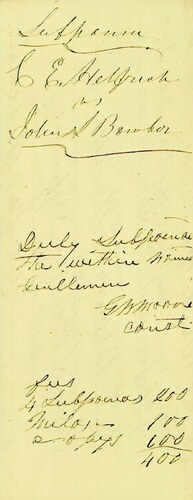 Subpoena
C E Helfrich
vs
John S Barber
Duly Subpoened
the within named
Gentlemen
G W Moore
Const
fees
4 Subpoenas 200
Milage 100
copys 100
400